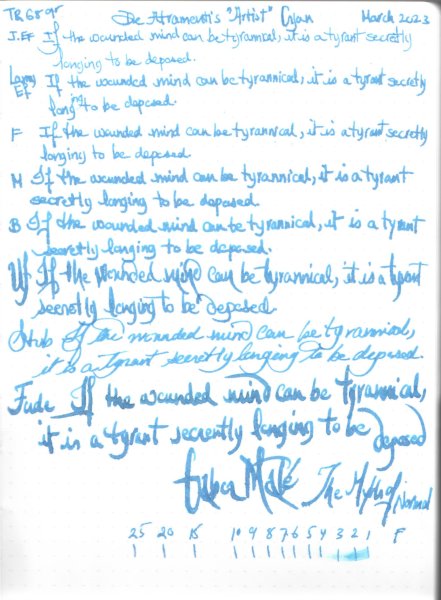 TR 68 gr De Atramentis "Artist" Cyan March 2023
J. EF If the wounded mind can be tyrannical, it is a tyrant secretly
longing to be deposed.
Lamy EF If the wounded mind can be tyrannical, it is a tyrant secretly
longing to be deposed.
F If the wounded mind can be tyrannical, it is a tyrant secretly
longing to be deposed.
M If the wounded mind can be tyrannical, it is a tyrant
secretly longing to be deposed.
B If the wounded mind can be tyrannical, it is a tyrant
secretly longing to be deposed.
If the wounded mind can be tyrannical, it is a tyrant
secretly longing to be deposed.
Stub If the wounded mind can be tyrannical,
it is a tyrant secretly longing to be deposed.
Fude If the wounded mind can be tyrannical,
it is a tyrant secrently longing to be deposed
Gabor Maté The Myth of Normal
25 20 15 10 9 8 7 6 5 4 3 2 1 F